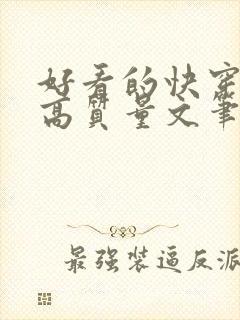 好看的快穿
高质量文笔
最强装逼反派